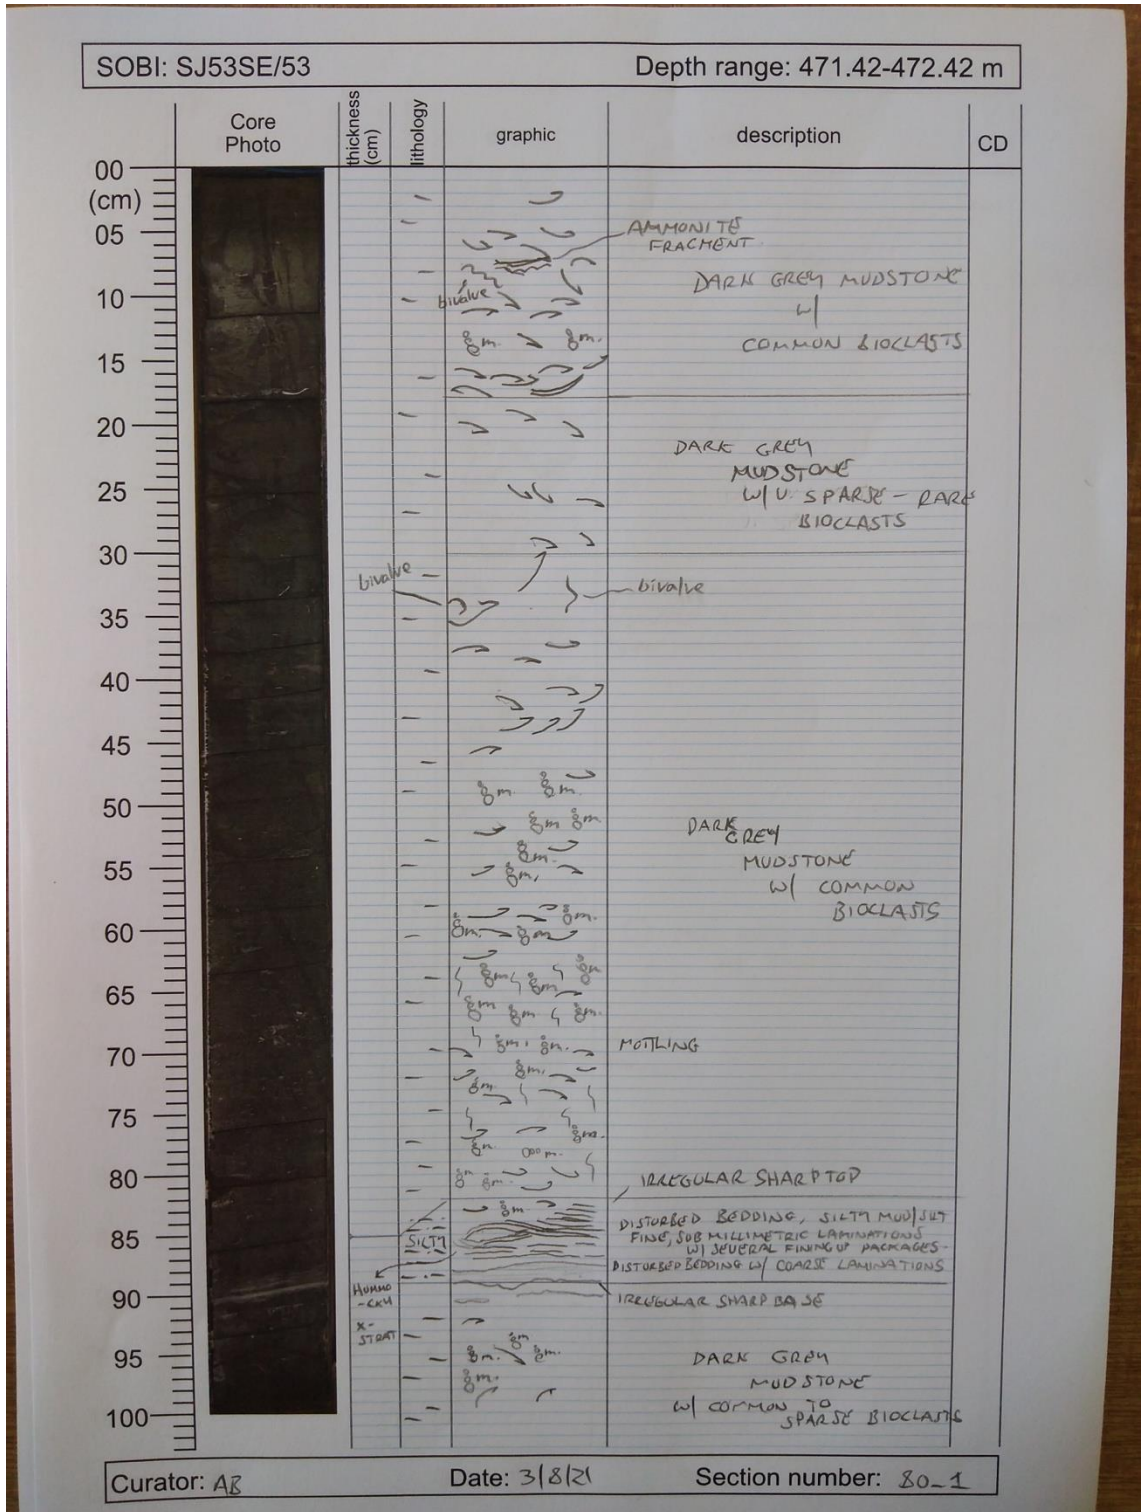 SOBI: SJ53SE/53
Depth range: 471.42-472.42 m
Core
Photo
thickness
(cm)
lithology
graphic
description
CD
00
(cm)
05
10
15
20
25
30
35
40
45
50
55
60
65
70
75
80
85
90
95
100
AMMONITE
FRAGMENT
bivalve
m. m.
DARK GREY MUDSTONE
w/
COMMON BIOCLASTS
DARK GREY
MUDSTONE
W/ V. SPARSE - RARE
BIOCLASTS
bivalve
bivalve
m. m.
m m.
m.
m.
m.
m. m.
m m m
m m. m.
m. m.
m.
m.
m.
m. m.
m m.
DARK
GREY
MUDSTONE
W/ COMMON
BIOCLASTS
MOTTLING
IRREGULAR SHARP TOP
m.
SILTY
DISTURBED BEDDING, SILTY MUD/SILT
FINE, SUB MILLIMETRIC LAMINATIONS
W/ SEVERAL FINING UP PACKAGES.
DISTURBED BEDDING W/ COARSE LAMINATIONS
HUMMO
-CKY
X-
STRAT
IRREGULAR SHARP BASE
m
m. m.
m.
DARK GREY
MUDSTONE
W/ COMMON TO
SPARSE BIOCLASTS
Curator: AB
Date: 3/8/21
Section number: 80_1